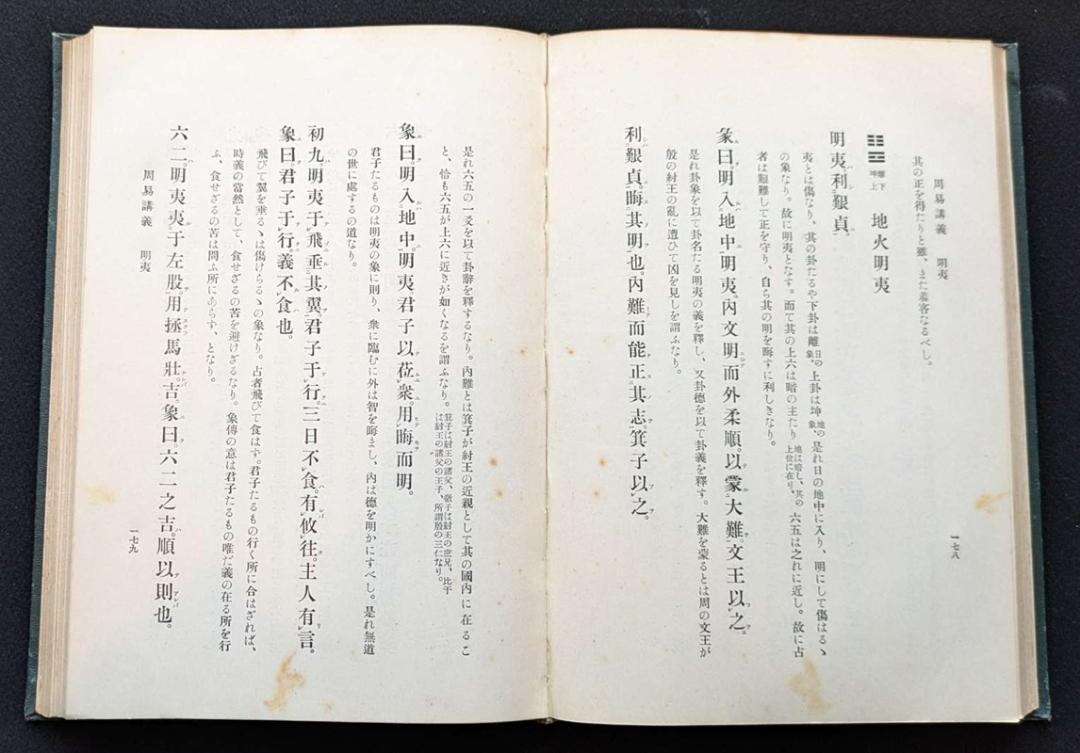 周易講義　明夷
一七八
其の正を得たりと雖、また羞吝なるべし。
離下
坤上
地火明夷
明夷。利艱貞。
夷とは傷なり、其の卦たるや下卦は離日の象、上卦は坤地の象、是れ日の地中に入り、明にして傷はるゝ
の象なり。故に明夷となす。而て其の上六は暗の主たり地は暗し、其の上位に在り、六五は之れに近し。故に占
者は艱難して正を守り、自ら其の明を晦すに利しきなり。
彖曰。明入地中明夷。內文明而外柔順。以蒙大難。文王以之。
是れ卦象を以て卦名たる明夷の義を釋し、又卦德を以て卦義を釋す。大難を蒙るとは周の文王が
殷の紂王の亂に遭ひて凶を見しを謂ふなり。
利艱貞。晦其明也。內難而能正其志。箕子以之。
是れ六五の一爻を以て卦辭を釋するなり。內難とは箕子が紂王の近親として其の國內に在るこ
と、恰も六五が上六に近きが如くなるを謂ふなり。箕子は紂王の諸父、微子は紂王の庶兄、比干は紂王の諸父の王子、所謂殷の三仁なり。
象曰。明入地中。明夷。君子以莅衆。用晦而明。
君子たるものは明夷の象に則り、衆に臨むに外は智を晦まし、內は德を明かにすべし。是れ無道
の世に處するの道なり。
初九。明夷于飛。垂其翼。君子于行。三日不食。有攸往。主人有言。
象曰。君子于行。義不食也。
飛びて翼を垂るゝは傷けらるゝの象なり。占者飛びて食はず。君子たるもの行く所に合はざれば、
時義の當然として、食せざるの苦を避けざるなり。象傳の意は君子たるもの唯だ義の在る所を行
ふ、食せざるの苦は問ふ所にあらず、となり。
六二。明夷。夷于左股。用拯馬壯。吉。象曰。六二之吉。順以則也。
周易講義　明夷
一七九